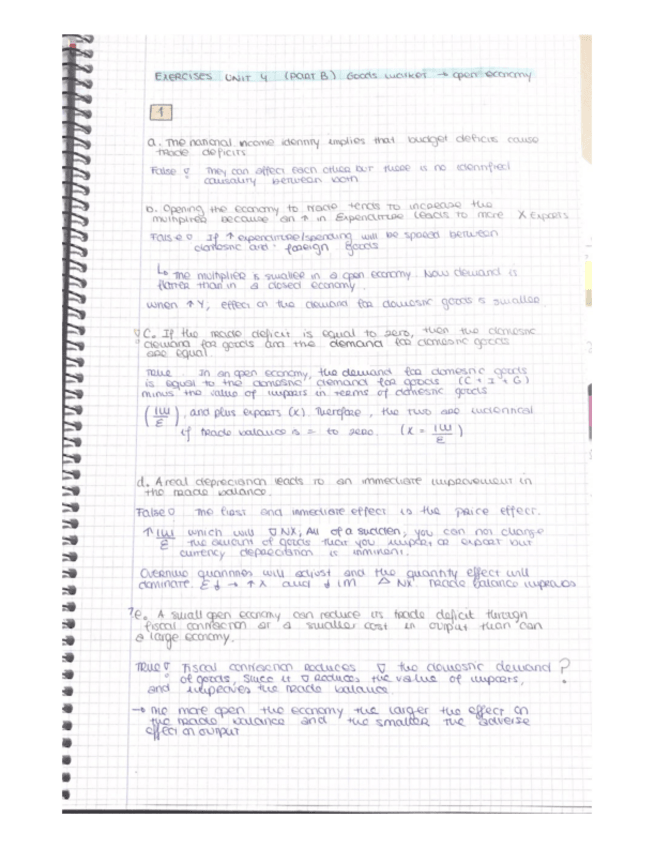 EXERCISES UNIT 4 (PART B) Goods market → open economy
1
a. The national income identity implies that budget deficits cause
trade deficits
False ! They can affect each other but there is no identified
causality between both
b. Opening the economy to trade tends to increase the
multiplier because an ↑ in Expenditure leads to more X Exports
False ! If ↑ expenditure/spending will be spead between
domestic and foreign goods
↳ The multiplier is smaller in a open economy. Now demand is
flatter than in a closed economy.
when ↑ Y, effect on the demand for domestic goods is smaller.
c. If the trade deficit is equal to zero, then the domestic
demand for goods an the demand for domestic goods
are equal.
True. In an open economy, the demand for domestic goods
is equal to the domestic demand for goods (C + I + G)
minus the value of imports in terms of domestic goods
(IM/E), and plus exports (x). Therefore, the two are identical
if trade balance is = to zero. (X = IM/E)
d. A real depreciation leads to an immediate improvement in
the trade balance.
False ! The first and immediate effect is the price effect.
↑ IM/E which will ∇ NX, All of a sudden, you can not change
the amount of goods that you import or export but
currency depreciation is imminent.
Overtime quantities will adjust and the quantity effect will
dominate. E↓ → ↑ X and ↓ IM Δ NX. Trade balance improves
? e. A small open economy can reduce its trade deficit through
fiscal contraction at a smaller cost in output than can
a large economy.
True ! Fiscal contraction reduces ∇ the domestic demand ?
of goods, since it ∇ reduces the value of imports,
and improves the trade balance.
→ The more open the economy the larger the effect on
the trade balance and the smaller the adverse
effect on output